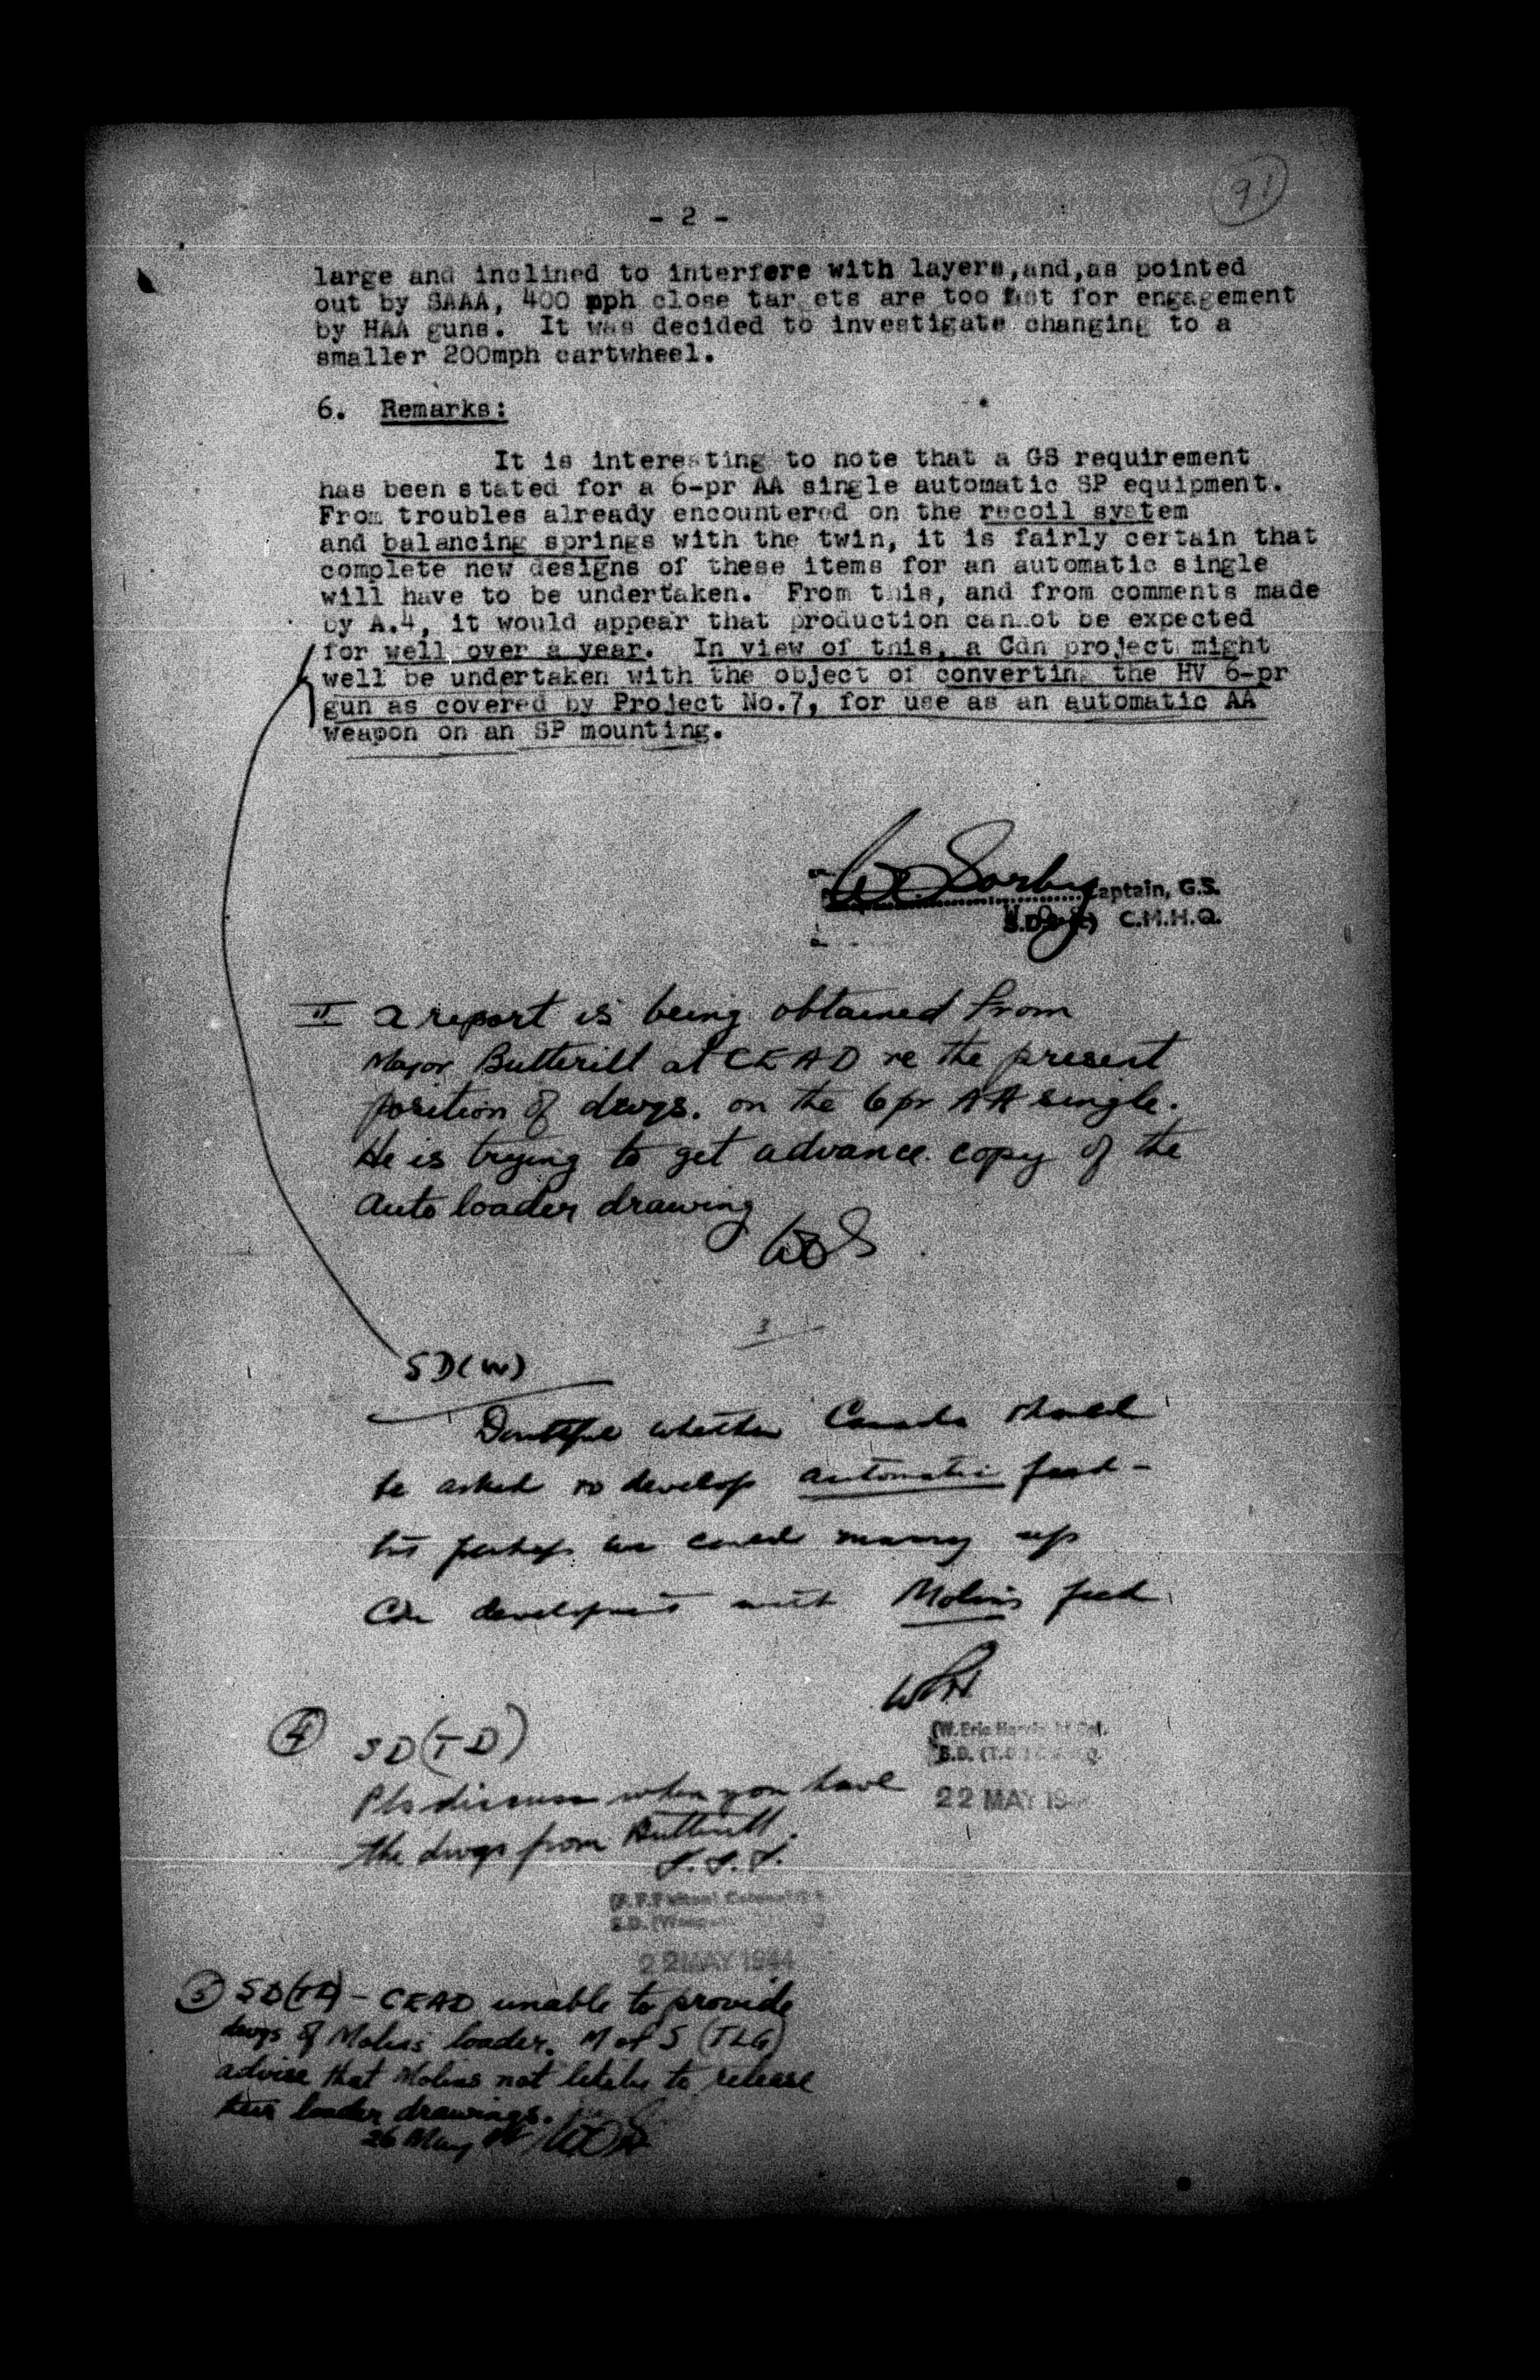 91
- 2 -
large and inclined to interfere with layers,and,as pointed
out by SAAA, 400 mph close targets are too fast for engagement
by HAA guns. It was decided to investigate changing to a
smaller 200mph cartwheel.
6. Remarks:
It is interesting to note that a GS requirement
has been stated for a 6-pr AA single automatic SP equipment.
From troubles already encountered on the recoil system
and balancing springs with the twin, it is fairly certain that
complete new designs of these items for an automatic single
will have to be undertaken. From this, and from comments made
by A.4, it would appear that production cannot be expected
for well over a year. In view of this, a Cdn project might
well be undertaken with the object of converting the HV 6-pr
gun as covered by Project No.7, for use as an automatic AA
weapon on an SP mounting.
Sorby Captain, G.S.
C.M.H.Q.
II A report is being obtained from
Major Butterill at CEAD re the present
position of dwgs. on the 6pr AA single.
He is trying to get advance copy of the
auto loader drawing
WOS
3
SD(W)
Doubtful whether Canada should
be asked to develop automatic feed -
but perhaps we could marry up
Cdn development with Molins feed
WEH
(W. Eric Harris) Lt Col.
S.D. (T.D.)
22 MAY 19
4 SD(TD)
Pls discuss when you have
the dwgs from Butterill.
Colonel
S.D. (Weapons
22 MAY 1944
5 SD(TD) - CEAD unable to provide
dwgs of Molins loader. M of S (TLG)
advise that Molins not likely to release
their loader drawings.
26 May WOS